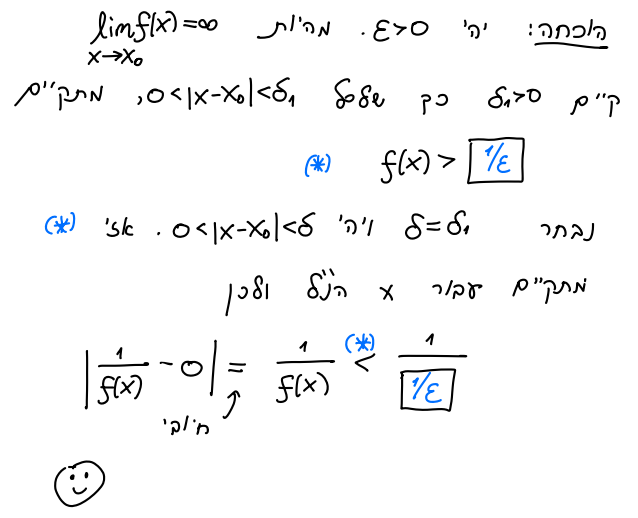 הוכחה: יהי ε>0. מהיות lim f(x)=∞
x→x₀
קיים δ₁>0 כך שלכל 0<|x-x₀|<δ₁, מתקיים
(*) f(x) > 1/ε
נבחר δ=δ₁ ויהי 0<|x-x₀|<δ. אזי (*)
מתקיים עבור x הנ"ל ולכן
|1/f(x) - 0| = 1/f(x) <(*) 1/(1/ε)
חיובי